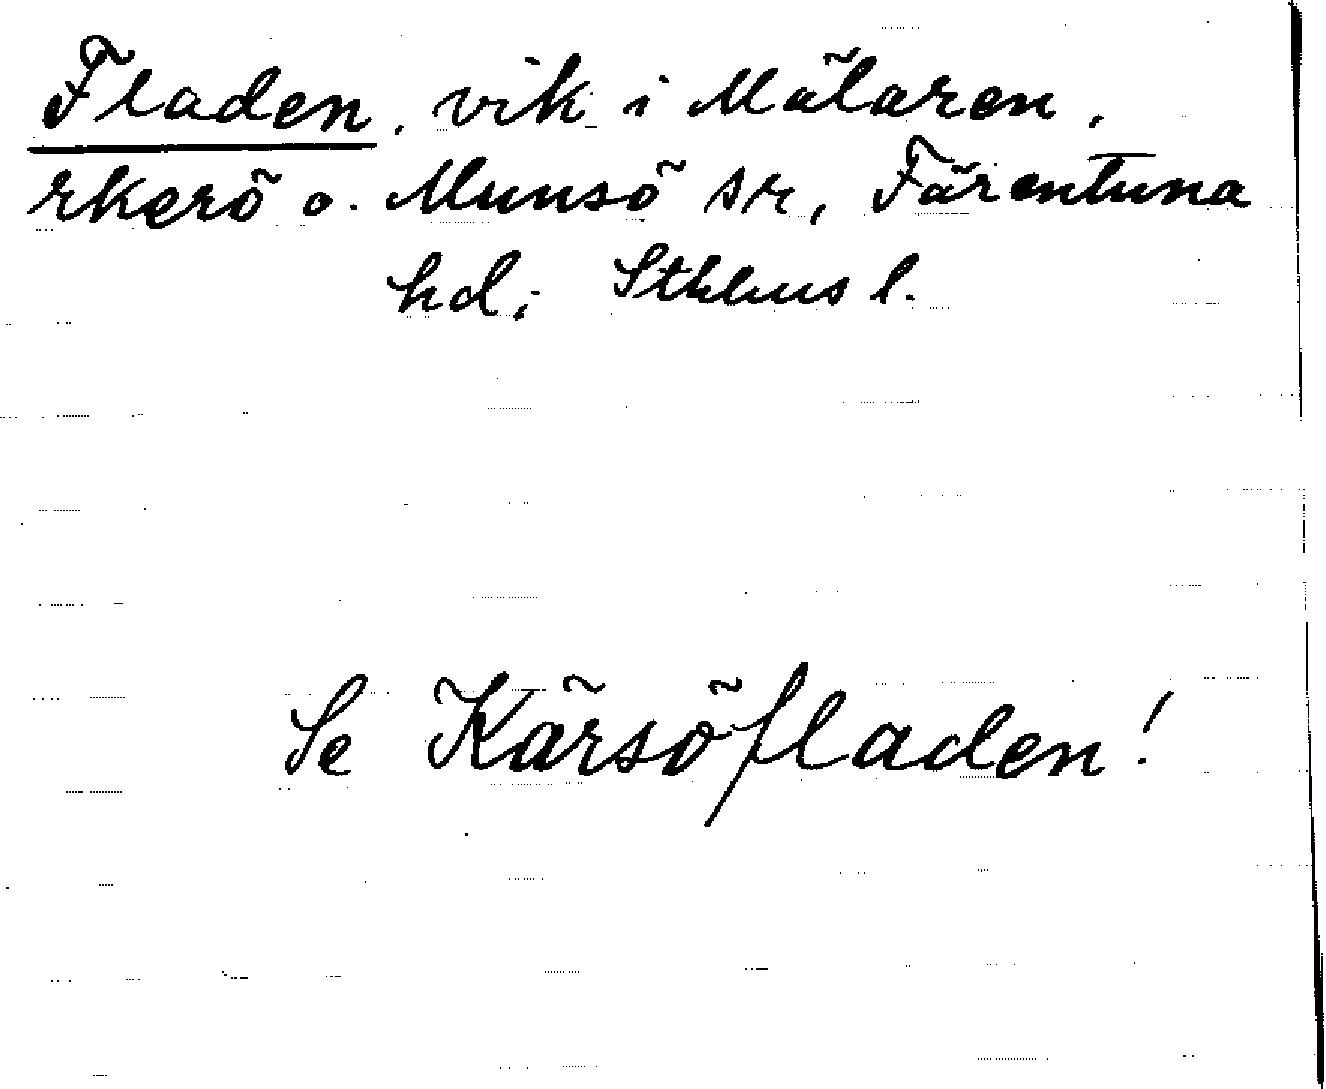 Fladen, vik i Mälaren,
rkerö o. Munsö sr, Färentuna
hd, Sthlms l.
Se Kärsöfladen!